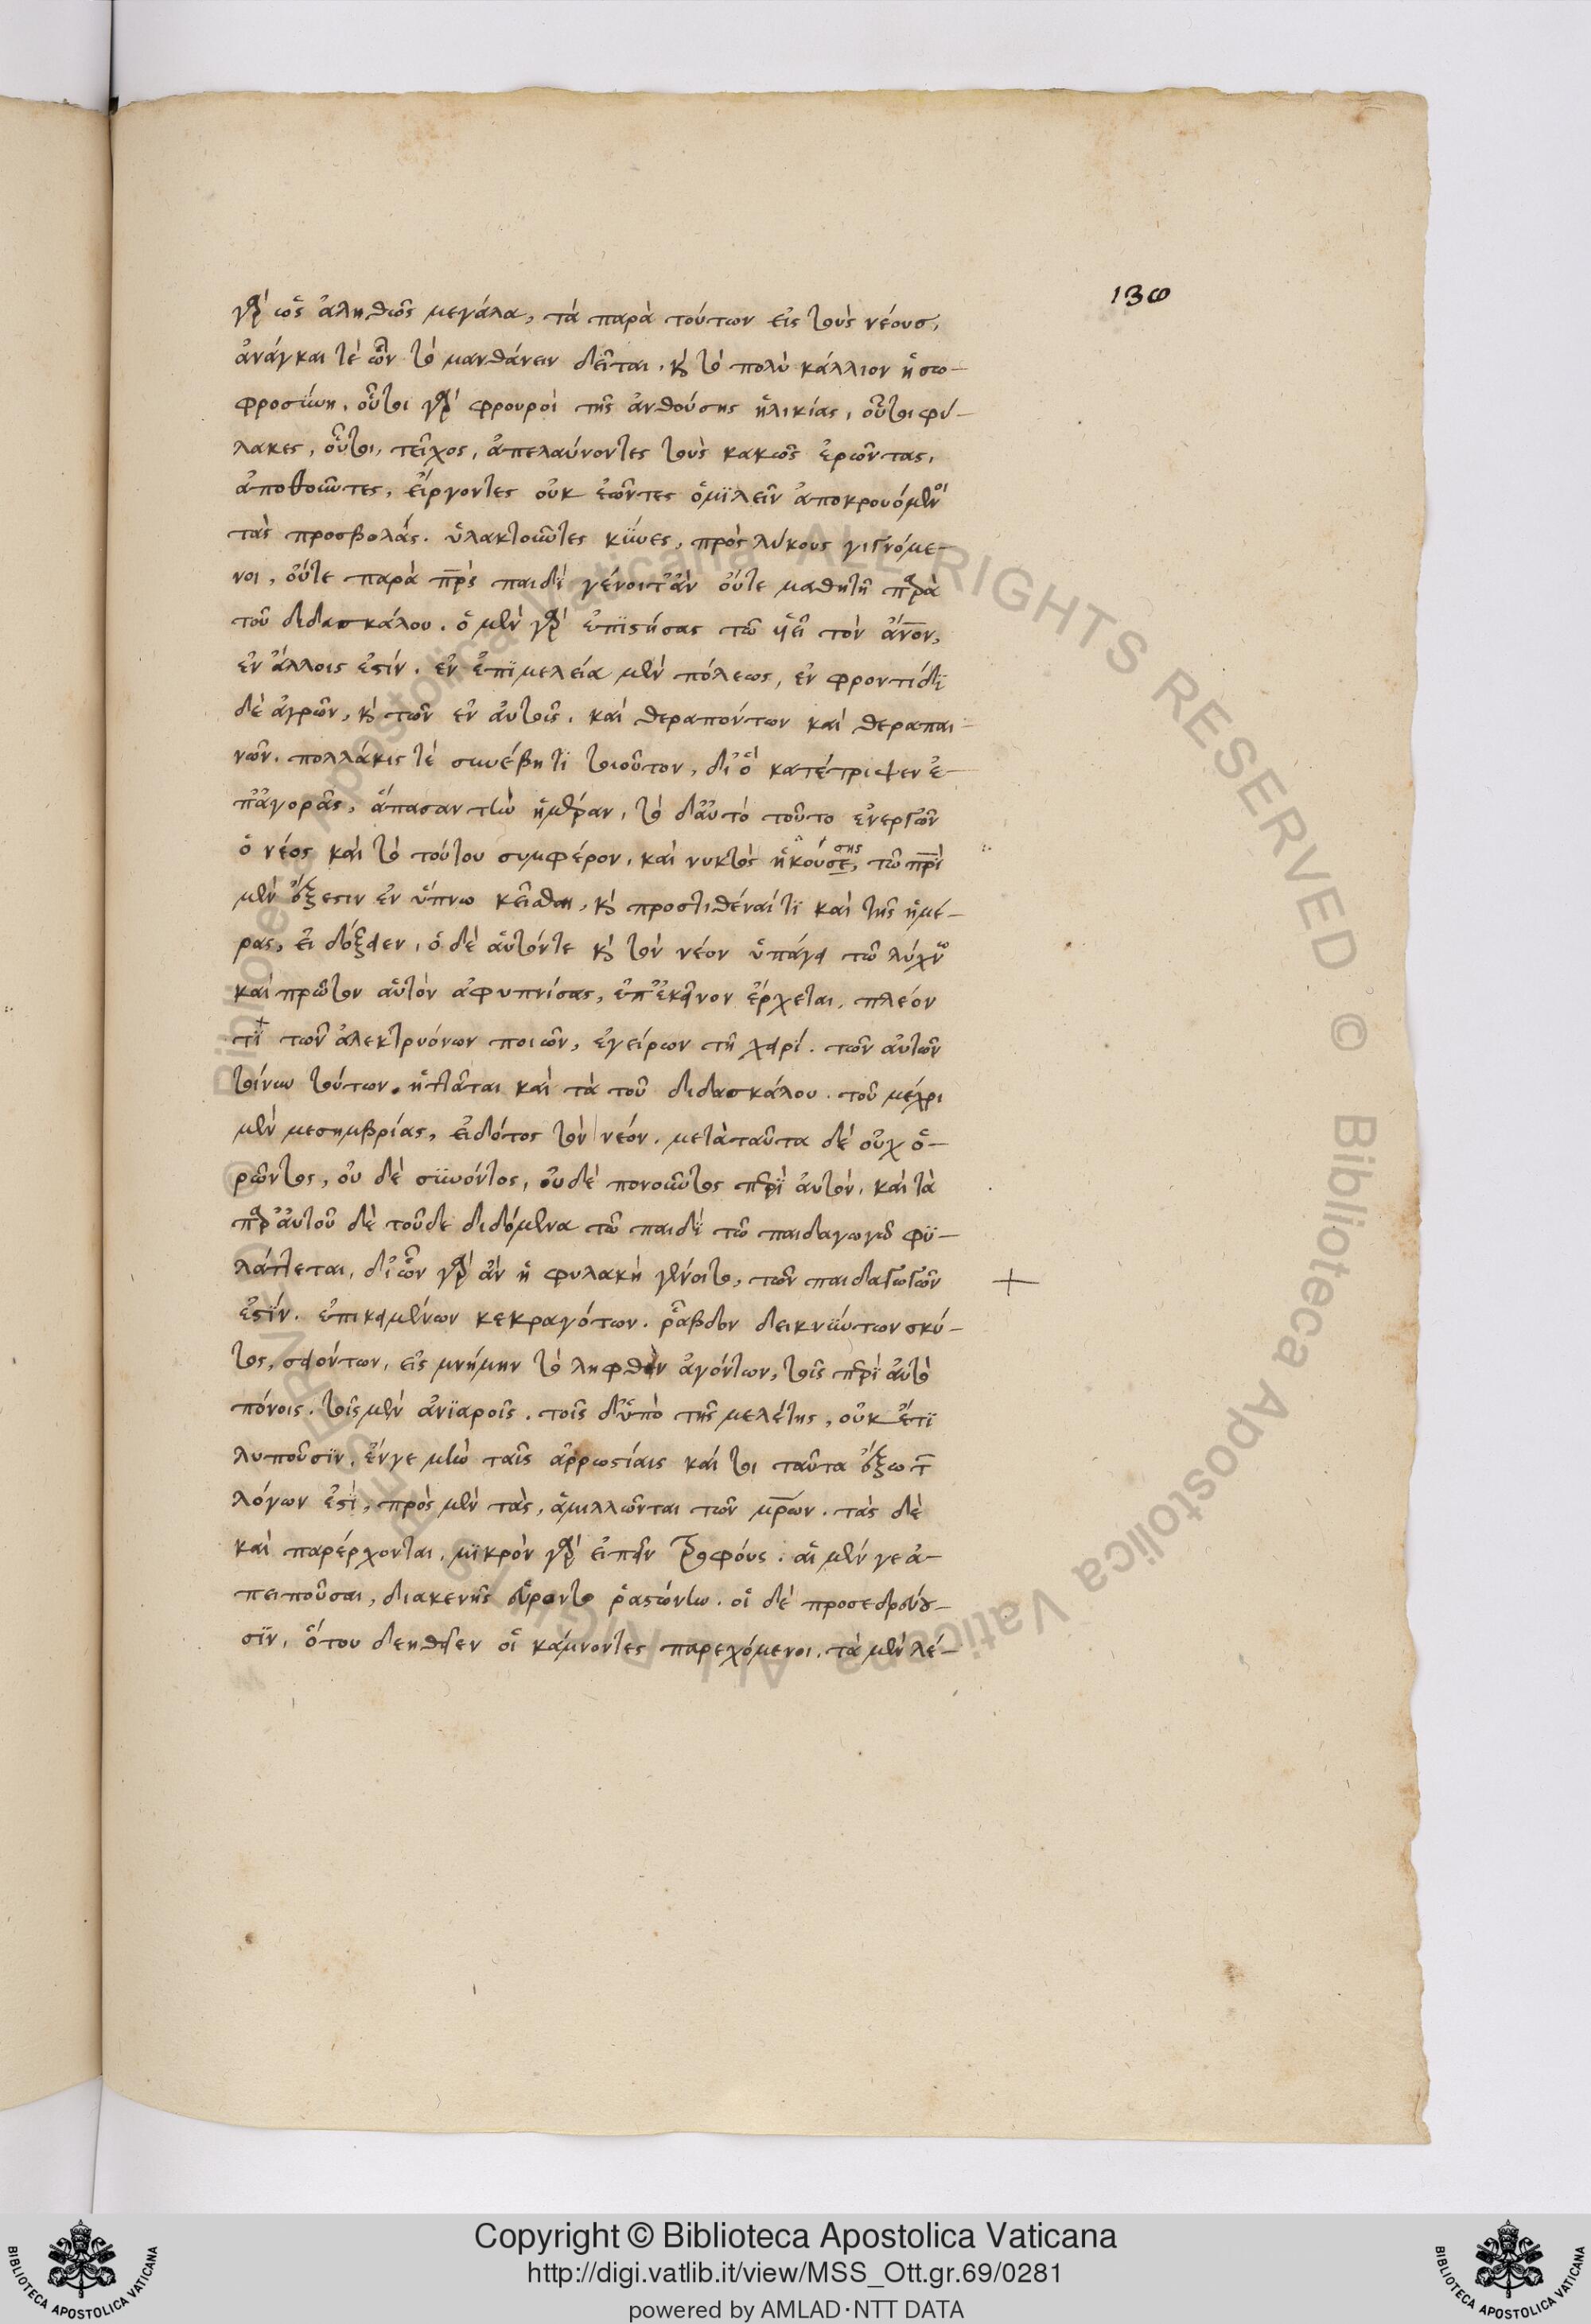 130
γὰρ ὡς ἀληθῶς μεγάλα, τὰ παρὰ τούτων εἰς τοὺς νέους,
ἀνάγκαι τὲ ὧν τὸ μανθάνειν δεῖται, κὶ τὸ πολὺ κάλλιον ἡ σω-
φροσύνη, οὗτοι γὰρ φρουροὶ τῆς ἀνθούσης ἡλικίας, οὗτοι φύ-
λακες, οὗτοι, τεῖχος, ἀπελαύνοντες τοὺς κακῶς ἐρῶντας,
ἀποθοῦντες, εἴργοντες οὐκ ἐῶντες ὁμϊλεῖν ἀποκρουόμενοι
τὰς προσβολάς. ὑλακτοῦντες κύνες, πρὸς λύκους γιγνόμε-
νοι, οὔτε παρὰ πρς παιδὶ γένοιτ' ἂν οὔτε μαθητῆ παρὰ
τοῦ διδασκάλου. ὁ μὲν γὰρ ἐπιστήσας τῶ υἱεῖ τὸν ἄνον,
ἐν ἄλλοις ἐστίν. ἐν ἐπϊμελεία μὲν πόλεως, ἐν φροντίδϊ
δὲ ἀγρῶν, κὶ τῶν ἐν αὐτοῖς. καὶ θεραπόντων καὶ θεραπαι-
νῶν. πολλάκις τὲ συνέβη τὶ τοιοῦτον, δι' ὃ κατέτριψεν ἐ-
π' ἀγορᾶς, ἅπασαν τὴν ἡμέραν, τὸ δ' αὐτὸ τοῦτο ἐνεργῶν
ὁ νέος καὶ τὸ τούτου συμφέρον, καὶ νυκτὸς ἡκούσε, σης τῶ πρὶ
μὲν ἔξεσιν ἐν ὕπνω κεῖσθαι, κὶ προστιθέναί τϊ καὶ τῆς ἡμέ-
ρας, εἰ δόξειεν, ὁ δὲ αὑτόντε κὶ τὸν νέον ὑπάγει τῶ λύχνω
καὶ πρῶτον αὑτὸν ἀφυπνίσας, ἐπ' ἐκεῖνον ἔρχεται, πλέον
τϊ τῶν ἀλεκτρυόνων ποιῶν, ἐγείρων τῆ χειρί. τῶν αὐτῶν
τοίνυν τούτων. ἡττᾶται καὶ τὰ τοῦ διδασκάλου. τοῦ μέχρι
μὲν μεσημβρίας, εἰδότος τὸν νέον. μετὰ ταῦτα δὲ οὐχ ὁ-
ρῶντος, οὐ δὲ συνόντος, οὐδὲ πονοῦντος περὶ αὐτόν. καὶ τὰ
παρ' αὐτοῦ δὲ τοῦδε διδόμενα τῶ παιδὶ τῶ παιδαγωγῶ φϋ-
λάττεται, δι' ὧν γὰρ ἂν ἡ φυλακὴ γένοιτο, τῶν παιδαγωγῶν
ἐστίν. ἐπικειμένων κεκραγότων. ῥάβδον δεικνύντων σκύ-
τος, σειόντων, εἰς μνήμην τὸ ληφθὲν ἀγόντων, τοῖς περὶ αὐτὸ
πόνοις. τοῖς μὲν ἀνϊαροῖς. τοῖς δ' ὑπὸ τῆς μελέτης, οὐκ ἔτϊ
λυποῦσϊν, ἔνγε μὴν ταῖς ἀρρωστίαις καί τοι ταῦτα ἔξω τ
λόγων ἐστὶ, πρὸς μὲν τὰς, ἁμιλλῶνται τῶν μρων. τὰς δὲ
καὶ παρέρχονται, μϊκρὸν γὰρ εἰπεῖν τροφούς. αἱ μέν γε ἀ-
πειποῦσαι, διακενῆς εὕροντο ῥαστώνην. οἱ δὲ προσεδρεύου-
σϊν, ὅτου δεηθεῖεν οἱ κάμνοντες παρεχόμενοι. τὰ μὲν λέ-
Copyright © Biblioteca Apostolica Vaticana
http://digi.vatlib.it/view/MSS_Ott.gr.69/0281
powered by AMLAD·NTT DATA
BIBLIOTECA APOSTOLICA VATICANA
BIBLIOTECA APOSTOLICA VATICANA